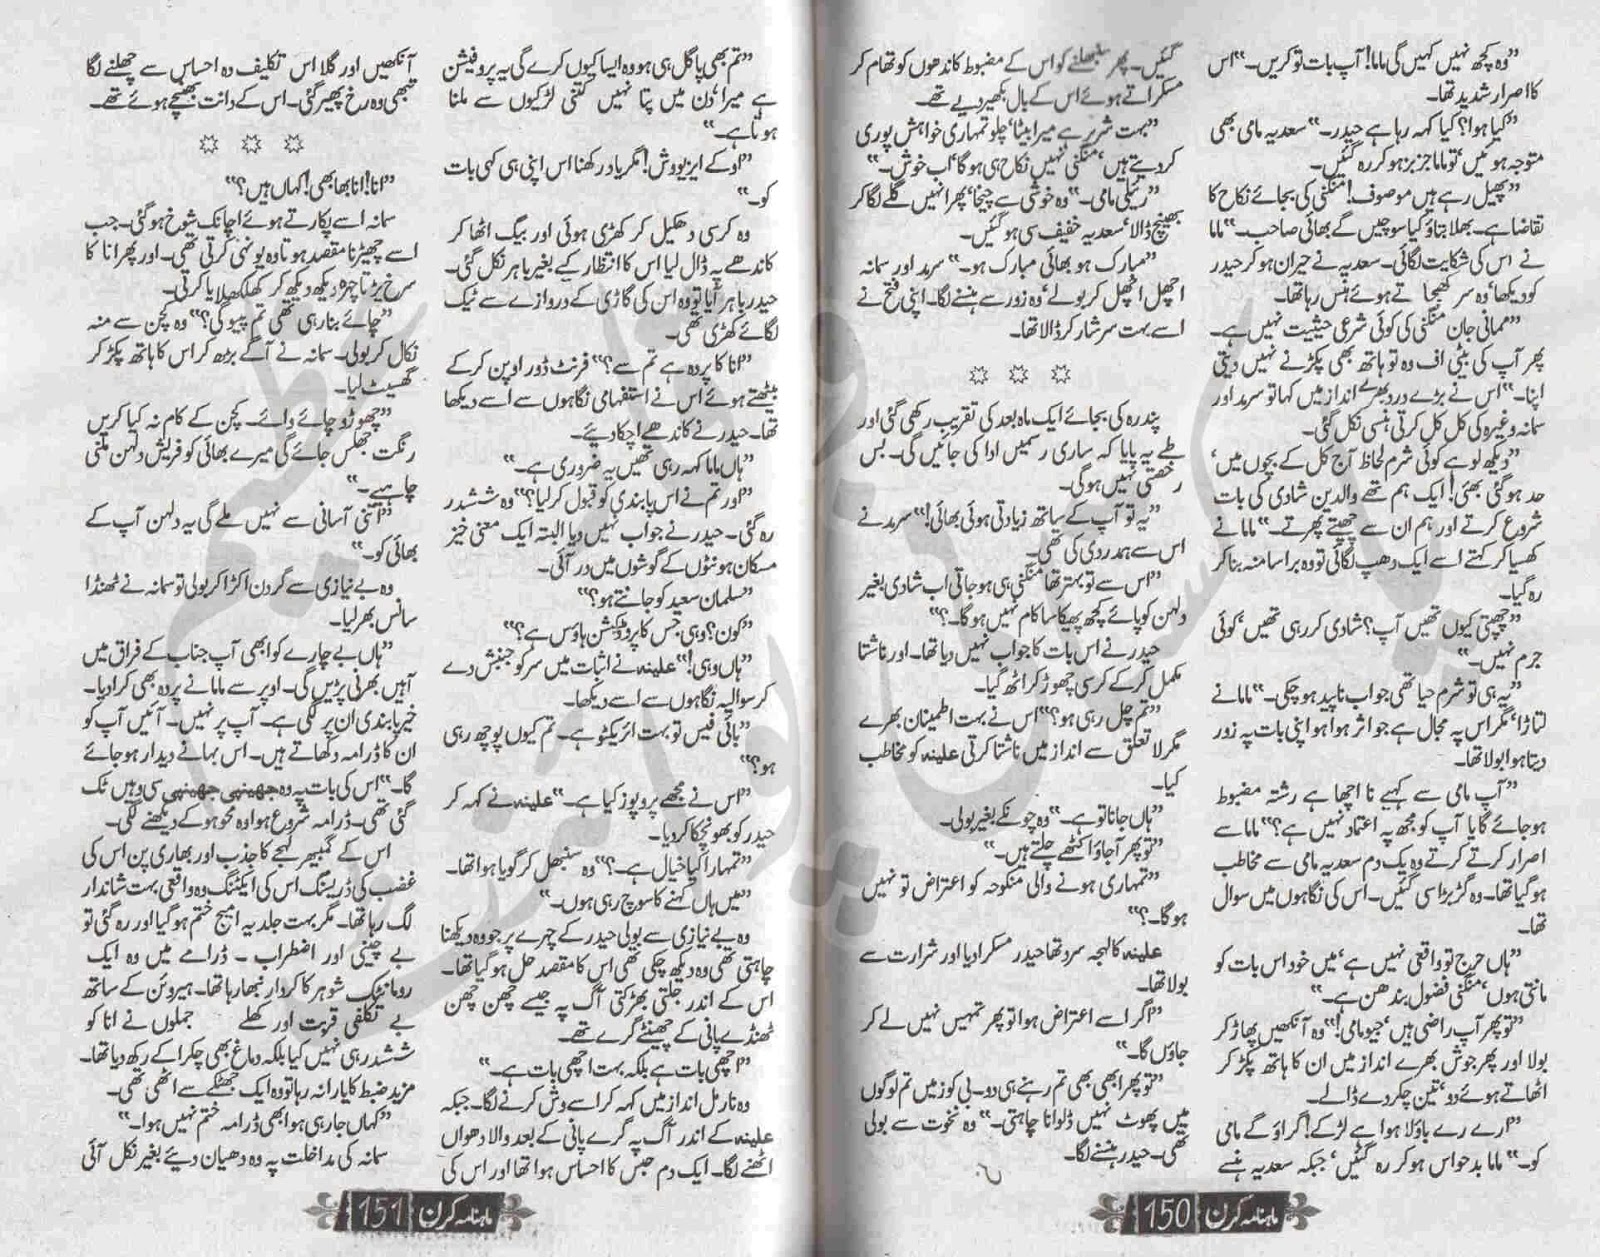 ”وہ کچھ نہیں کہیں گی ماما! آپ بات تو کریں۔“ اس
کا اصرار شدید تھا۔
”کیا ہوا؟ کیا کہہ رہا ہے حیدر۔“ سعدیہ مامی بھی
متوجہ ہوئیں‘ تو ماما جز بز ہو کر رہ گئیں۔
”پھیل رہے ہیں موصوف! منگنی کی بجائے نکاح کا
تقاضا ہے۔ بھلا بتاؤ کیا سوچیں گے بھائی صاحب۔“ ماما
نے اس کی شکایت لگائی۔ سعدیہ نے حیران ہو کر حیدر
کو دیکھا‘ وہ سر کھجاتے ہوئے ہنس رہا تھا۔
”ممانی جان منگنی کی کوئی شرعی حیثیت نہیں ہے۔
پھر آپ کی بیٹی اف وہ تو ہاتھ بھی پکڑنے نہیں دیتی
اپنا۔“ اس نے بڑے درد بھرے انداز میں کہا تو سرمد اور
سمانہ وغیرہ کی کل کل کرتی ہنسی نکل گئی۔
”دیکھ لو ہے کوئی شرم لحاظ آج کل کے بچوں میں‘
حد ہو گئی بھئی! ایک ہم تھے والدین شادی کی بات
شروع کرتے اور ہم ان سے چھپتے پھرتے۔“ ماما نے
کھسیا کر کہتے اسے ایک دھپ لگائی تو وہ برا سا منہ بنا کر
رہ گیا۔
”چھپتی کیوں تھیں آپ؟ شادی کر رہی تھیں‘ کوئی
جرم نہیں۔“
”یہ ہی تو شرم حیا تھی جو اب ناپید ہو چکی۔“ ماما نے
لتاڑا‘ مگر اس پہ مجال ہے جو اثر ہوا ہو اپنی بات پہ زور
دیتا ہوا بولا تھا۔
”آپ مامی سے کہیے نا اچھا ہے رشتہ مضبوط
ہو جائے گا یا آپ کو مجھ پہ اعتماد نہیں ہے؟“ ماما سے
اصرار کرتے کرتے وہ یک دم سعدیہ مامی سے مخاطب
ہو گیا تھا۔ وہ گڑبڑا سی گئیں۔ اس کی نگاہوں میں سوال
تھا۔
”ہاں حرج تو واقعی نہیں ہے‘ میں خود اس بات کو
مانتی ہوں‘ منگنی فضول بندھن ہے۔“
”تو پھر آپ راضی ہیں‘ جیو مامی!“ وہ آنکھیں پھاڑ کر
بولا اور پھر جوش بھرے انداز میں ان کا ہاتھ پکڑ کر
اٹھاتے ہوئے دو‘ تین چکر دے ڈالے۔
”ارے رے باؤلا ہوا ہے لڑکے! گراؤ گے مامی
کو۔“ ماما بدحواس ہو کر رہ گئیں‘ جبکہ سعدیہ ہنسے
گئیں۔ پھر سنبھلنے کو اس کے مضبوط کاندھوں کو تھام کر
مسکراتے ہوئے اس کے بال بکھیر دیے تھے۔
”بہت شریر ہے میرا بیٹا‘ چلو تمہاری خواہش پوری
کر دیتے ہیں‘ منگنی نہیں نکاح ہی ہو گا‘ اب خوش۔“
”رئیلی مامی۔“ وہ خوشی سے چیخا‘ پھر انہیں گلے لگا کر
بھینچ ڈالا‘ سعدیہ خفیف سی ہو گئیں۔
”مبارک ہو بھائی مبارک ہو۔“ سرمد اور سمانہ
اچھل اچھل کر بولے‘ وہ زور سے ہنسنے لگا۔ اپنی فتح نے
اسے بہت سرشار کر ڈالا تھا۔
پندرہ کی بجائے ایک ماہ بعد کی تقریب رکھی گئی اور
طے یہ پایا کہ ساری رسمیں ادا کی جائیں گی۔ بس
رخصتی نہیں ہو گی۔
”یہ تو آپ کے ساتھ زیادتی ہوئی بھائی!“ سرمد نے
اس سے ہمدردی کی تھی۔
”اس سے تو بہتر تھا منگنی ہی ہو جاتی اب شادی بغیر
دلہن کو پائے کچھ پھیکا سا کام نہیں ہو گا۔؟“
حیدر نے اس بات کا جواب نہیں دیا تھا۔ اور ناشتا
مکمل کر کے کرسی چھوڑ کر اٹھ گیا۔
”تم چل رہی ہو؟“ اس نے بہت اطمینان بھرے
مگر لا تعلق سے انداز میں ناشتا کرتی علینہ کو مخاطب
کیا۔
”ہاں جانا تو ہے۔“ وہ چونکے بغیر بولی۔
”تو پھر آجاؤ اکٹھے چلتے ہیں۔“
”تمہاری ہونے والی منکوحہ کو اعتراض تو نہیں
ہو گا۔؟“
علینہ کا لہجہ سرد تھا حیدر مسکرا دیا اور شرارت سے
بولا تھا۔
”اگر اسے اعتراض ہوا تو پھر تمہیں نہیں لے کر
جاؤں گا۔“
”تو پھر ابھی بھی تم رہنے ہی دو۔ بی کوز میں تم لوگوں
میں پھوٹ نہیں ڈلوانا چاہتی۔“ وہ نخوت سے بولی
تھی۔ حیدر ہنسنے لگا۔
ماہنامہ کرن 150
”تم بھی پاگل ہی ہو وہ ایسا کیوں کرے گی یہ پروفیشن
ہے میرا‘ دن میں پتا نہیں کتنی لڑکیوں سے ملنا
ہوتا ہے۔“
”او کے ایز یو وش! مگر یاد رکھنا اس اپنی ہی کہی بات
کو۔“
وہ کرسی دھکیل کر کھڑی ہوئی اور بیگ اٹھا کر
کاندھے پہ ڈال لیا اس کا انتظار کیے بغیر باہر نکل گئی۔
حیدر باہر آیا تو وہ اس کی گاڑی کے دروازے سے ٹیک
لگائے کھڑی تھی۔
”انا کا پردہ ہے تم سے؟“ فرنٹ ڈور اوپن کر کے
بیٹھتے ہوئے اس نے استفہامی نگاہوں سے اسے دیکھا
تھا۔ حیدر نے کاندھے اچکا دیے۔
”ہاں ماما کہہ رہی تھیں یہ ضروری ہے۔“
”اور تم نے اس پابندی کو قبول کر لیا؟“ وہ ششدر
رہ گئی۔ حیدر نے جواب نہیں دیا البتہ ایک معنی خیز
مسکان ہونٹوں کے گوشوں میں در آئی۔
”سلمان سعید کو جانتے ہو؟“
”کون؟ وہی جس کا پروڈکشن ہاؤس ہے؟“
”ہاں وہی!“ علینہ نے اثبات میں سر کو جنبش دے
کر سوالیہ نگاہوں سے اسے دیکھا۔
”بائی فیس تو بہت اٹریکٹو ہے۔ تم کیوں پوچھ رہی
ہو؟“
”اس نے مجھے پروپوز کیا ہے۔“ علینہ نے کہہ کر
حیدر کو بھونچکا کر دیا۔
”تمہارا کیا خیال ہے۔؟“ وہ سنبھل کر گویا ہوا تھا۔
”میں ہاں کہنے کا سوچ رہی ہوں۔“
وہ بے نیازی سے بولی حیدر کے چہرے پر جو وہ دیکھنا
چاہتی تھی وہ دیکھ چکی تھی اس کا مقصد حل ہو گیا تھا۔
اس کے اندر جلتی بھڑکتی آگ پہ جیسے چھن چھن
ٹھنڈے پانی کے چھینٹے گرے تھے۔
”اچھی بات ہے بلکہ بہت اچھی بات ہے۔“
وہ نارمل انداز میں کہہ کر اسے وش کرنے لگا۔ جبکہ
علینہ کے اندر آگ پہ گرے پانی کے بعد والا دھواں
اٹھنے لگا۔ ایک دم حبس کا احساس ہوا تھا اور اس کی
آنکھیں اور گلا اس تکلیف دہ احساس سے چھلنے لگا
تبھی وہ رخ پھیر گئی۔ اس کے دانت بھنچے ہوئے تھے۔
”انا! انا بھابھی! کہاں ہیں؟“
سمانہ اسے پکارتے ہوئے اچانک شوخ ہو گئی۔ جب
اسے چھیڑنا مقصد ہوتا وہ یونہی کرتی تھی۔ اور پھر انا کا
سرخ پڑتا چہرہ دیکھ دیکھ کر کھلکھلایا کرتی۔
”چائے بنا رہی تھی تم پیو گی؟“ وہ کچن سے منہ
نکال کر بولی۔ سمانہ نے آگے بڑھ کر اس کا ہاتھ پکڑ کر
گھسیٹ لیا۔
”چھوڑو چائے وائے۔ کچن کے کام نہ کیا کریں
رنگت جھلس جائے گی میرے بھائی کو فریش دلہن ملنی
چاہیے۔“
”اتنی آسانی سے نہیں ملے گی یہ دلہن آپ کے
بھائی کو۔“
وہ بے نیازی سے گردن اکڑا کر بولی تو سمانہ نے ٹھنڈا
سانس بھر لیا۔
”ہاں بے چارے کو ابھی آپ جناب کے فراق میں
آہیں بھرنی پڑیں گی۔ اوپر سے ماما نے پردہ بھی کرا دیا۔
خیر پابندی ان پر لگی ہے۔ آپ پر نہیں۔ آئیں آپ کو
ان کا ڈرامہ دکھاتے ہیں۔ اس بہانے دیدار ہو جائے
گا۔“ اس کی بات پہ وہ جھینپی جھینپی سی وہیں ٹک
گئی تھی۔ ڈرامہ شروع ہوا وہ محو ہو کے دیکھنے لگی۔
اس کے گمبھیر لہجے کا جذب اور بھاری پن اس کی
غضب کی ڈریسنگ اس کی ایکٹنگ وہ واقعی بہت شاندار
لگ رہا تھا۔ مگر بہت جلد یہ امیج ختم ہو گیا اور رہ گئی تو
بے چینی اور اضطراب۔ ڈرامے میں وہ ایک
رومانٹک شوہر کا کردار نبھا رہا تھا۔ ہیروئن کے ساتھ
بے تکلفی قربت اور کھلے جملوں نے انا کو
ششدر ہی نہیں کیا بلکہ دماغ بھی چکرا کے رکھ دیا تھا۔
مزید ضبط کا یارا نہ رہا تو وہ ایک جھٹکے سے اٹھی تھی۔
”کہاں جا رہی ہو ابھی ڈرامہ ختم نہیں ہوا۔“
سمانہ کی مداخلت پہ وہ دھیان دیے بغیر نکل آئی
ماہنامہ کرن 151